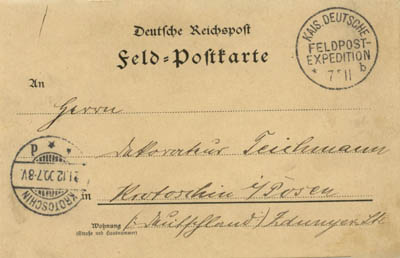 Deutsche Reichspost
Feld=Postkarte
KAIS. DEUTSCHE
FELDPOST-
EXPEDITION
* 7 11 b
An
Herrn
Dekorateur Teichmann
in Krotoschin i/Posen
Wohnung
(Straße und Hausnummer)
(Deutschland) Zdunyer Str
21.12.00.7-8V
KROTOSCHIN